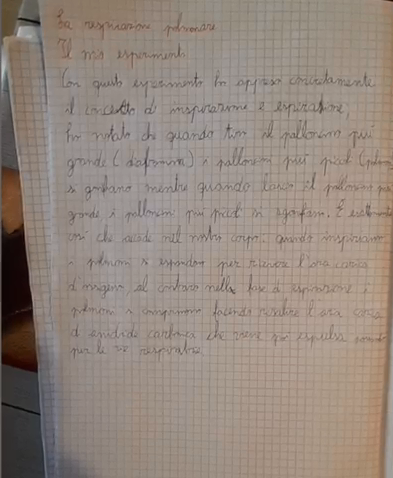 La respirazione polmonare
Il mio esperimento
Con questo esperimento ho appreso concretamente
il concetto di inspirazione e espirazione,
ho notato che quando tiro il palloncino più
grande (diaframma) i palloncini più picoli (polmoni
si gonfiano mentre quando lascio il palloncino più
grande i palloncini più picoli si sgonfiano. È esattamente
così che accade nel nostro corpo. quando inspiriamo
i polmoni si espandono per ricevere l'aria carica
d'ossigeno, al contrario nella fase di espirazione i
polmoni si comprimono facendo risalire l'aria carica
di anidride carbonica che viene poi espulsa
per le vie respiratorie